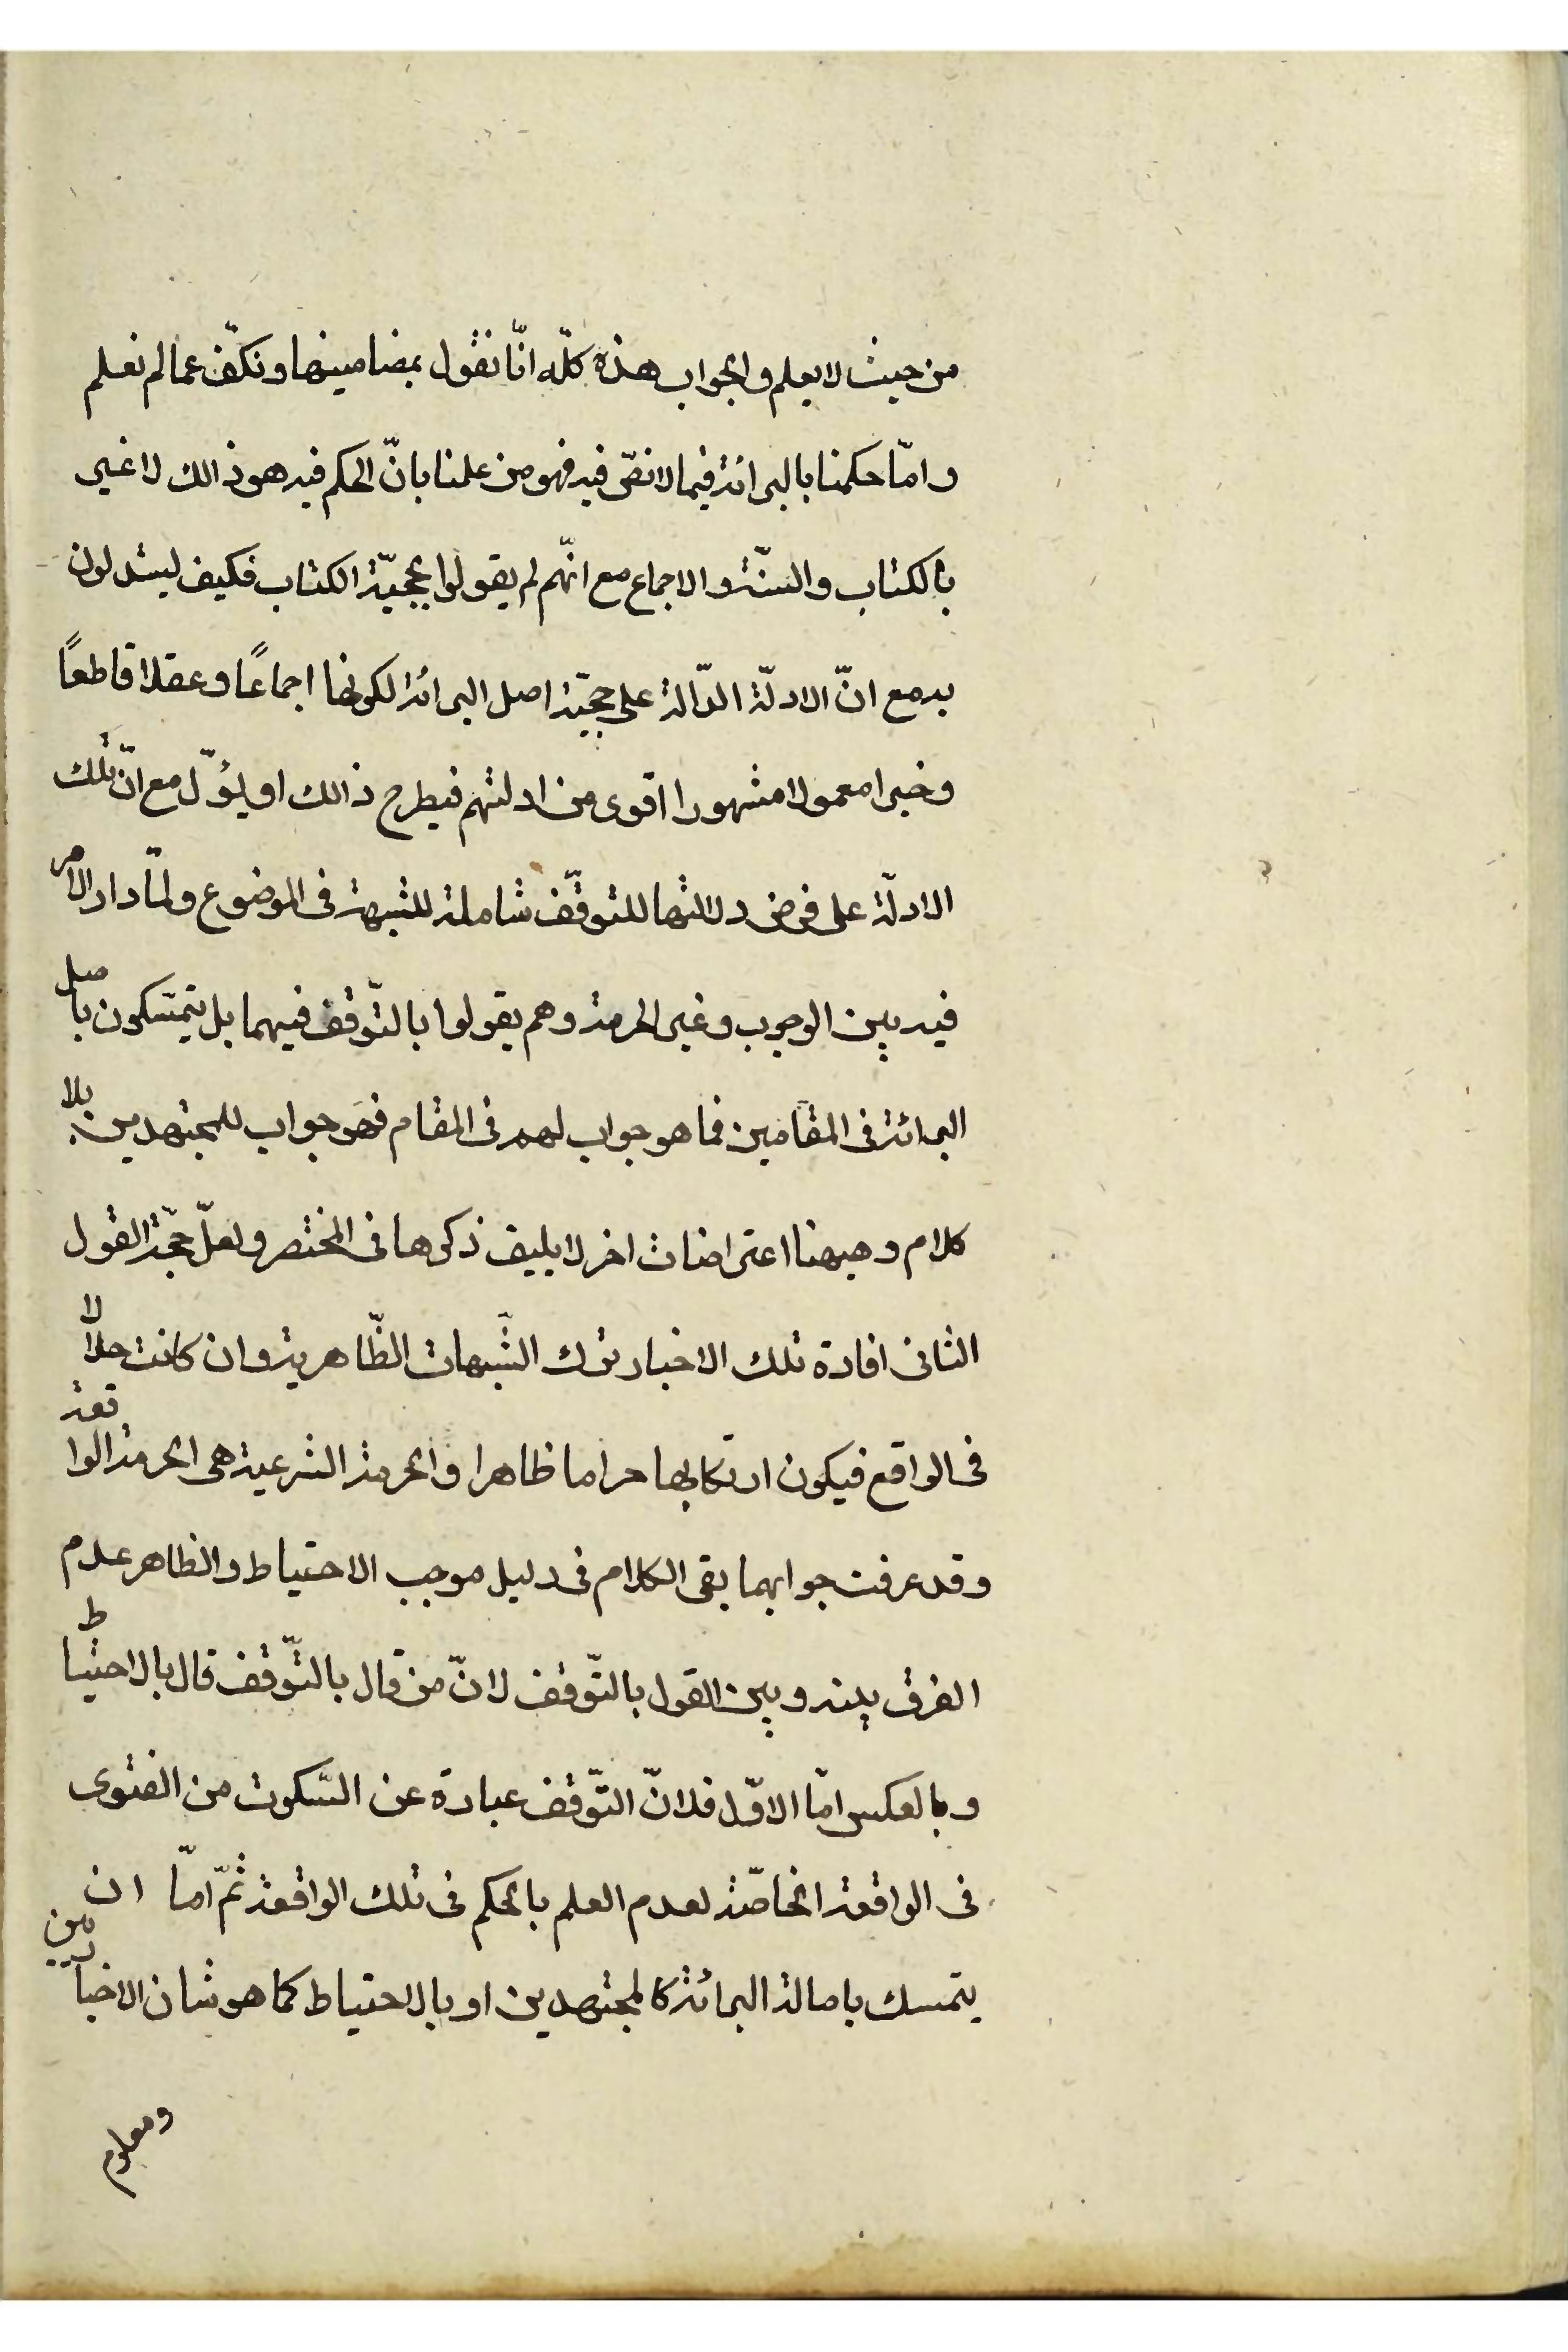 من حيث لا يعلم والجواب هذه كلّه انّا نقول بمضامينها ونكفّ عما لم نعلم
وامّا حكمنا بالبرائة فيما لا نصّ فيه فهو من علمنا بانّ الحكم فيه هو ذالك لا غير
بالكتاب والسنّة والاجماع مع انّهم لم يقولوا بحجيّة الكتاب فكيف يستدلون
به مع انّ الادلّة الدّالة على حجيّة اصل البرائة لكونها اجماعًا وعقلا قاطعًا
وخبرا معمولا مشهورا اقوى من ادلتهم فيطرح ذالك او يؤوّل مع انّ تلك
الادلّة على فرض دلالتها للتوقّف شاملة للشبهة فى الموضوع ولمّا دار الامر
فيه بين الوجوب وغير الحرمة وهم يقولوا بالتّوقف فيهما بل يتمسّكون باصل
البرائة فى المقامين فما هو جواب لهم فى المقام فهو جواب للمجتهدين بلا
كلام وهيهنا اعتراضات اخر لا يليق ذكرها فى المختصر ولعلّ حجّة القول
الثانى افادة تلك الاخبار ترك الشّبهات الظّاهرية وان كانت حلالا
فى الواقع فيكون ارتكابها حراما ظاهرا والحرمة الشرعية هى الحرمة الواقعة
وقد عرفت جوابهما بقى الكلام فى دليل موجب الاحتياط والظاهر عدم
الفرق بينه وبين القول بالتّوقف لانّ من قال بالتّوقف قال بالاحتياط
وبالعكس امّا الاوّل فلانّ التّوقف عبارة عن السّكوت من الفتوى
فى الواقعة الخاصّة لعدم العلم بالحكم فى تلك الواقعة ثمّ امّا ان
يتمسك باصالة البرائة كالمجتهدين او بالاحتياط كما هو شان الاخباريين
ومعلوم